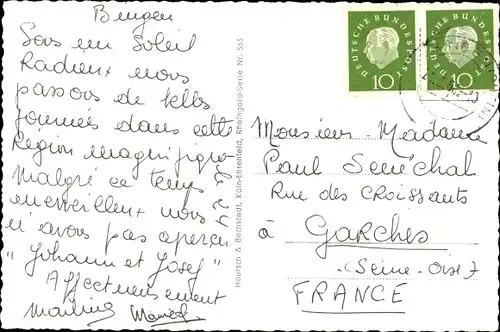 Bingen
Sous un Soleil
Radieux nous
passons de belles
journées dans cette
Région magnifique
Malgré ce temps
merveilleux nous
n'avons pas aperçu
"Johann et Josef"
Affectueusement
Hoursch & Bechstedt, Köln-Ehrenfeld, Rheingold-Serie Nr. 553
DEUTSCHE BUNDESPOST
10
DEUTSCHE BUNDESPOST
10
Monsieur - Madame
Paul Sénéchal
Rue des Croissants
à Garches
(Seine-Oise)
FRANCE